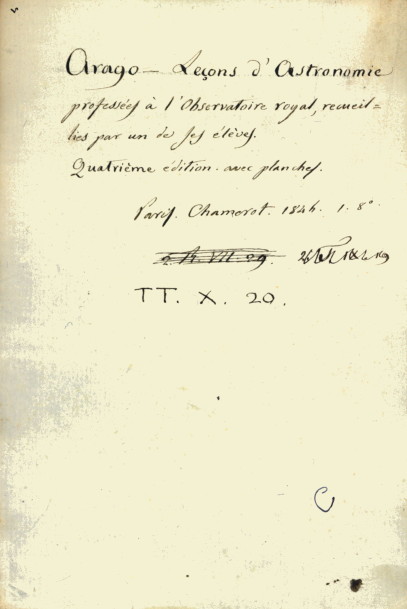 Arago — Leçons d'Astronomie
professées à l'Observatoire royal, recueil=
lies par un de ses élèves.
Quatrième édition. avec planches.
Paris. Chamerot. 1845. 1. 8°.
TT. X. 20.